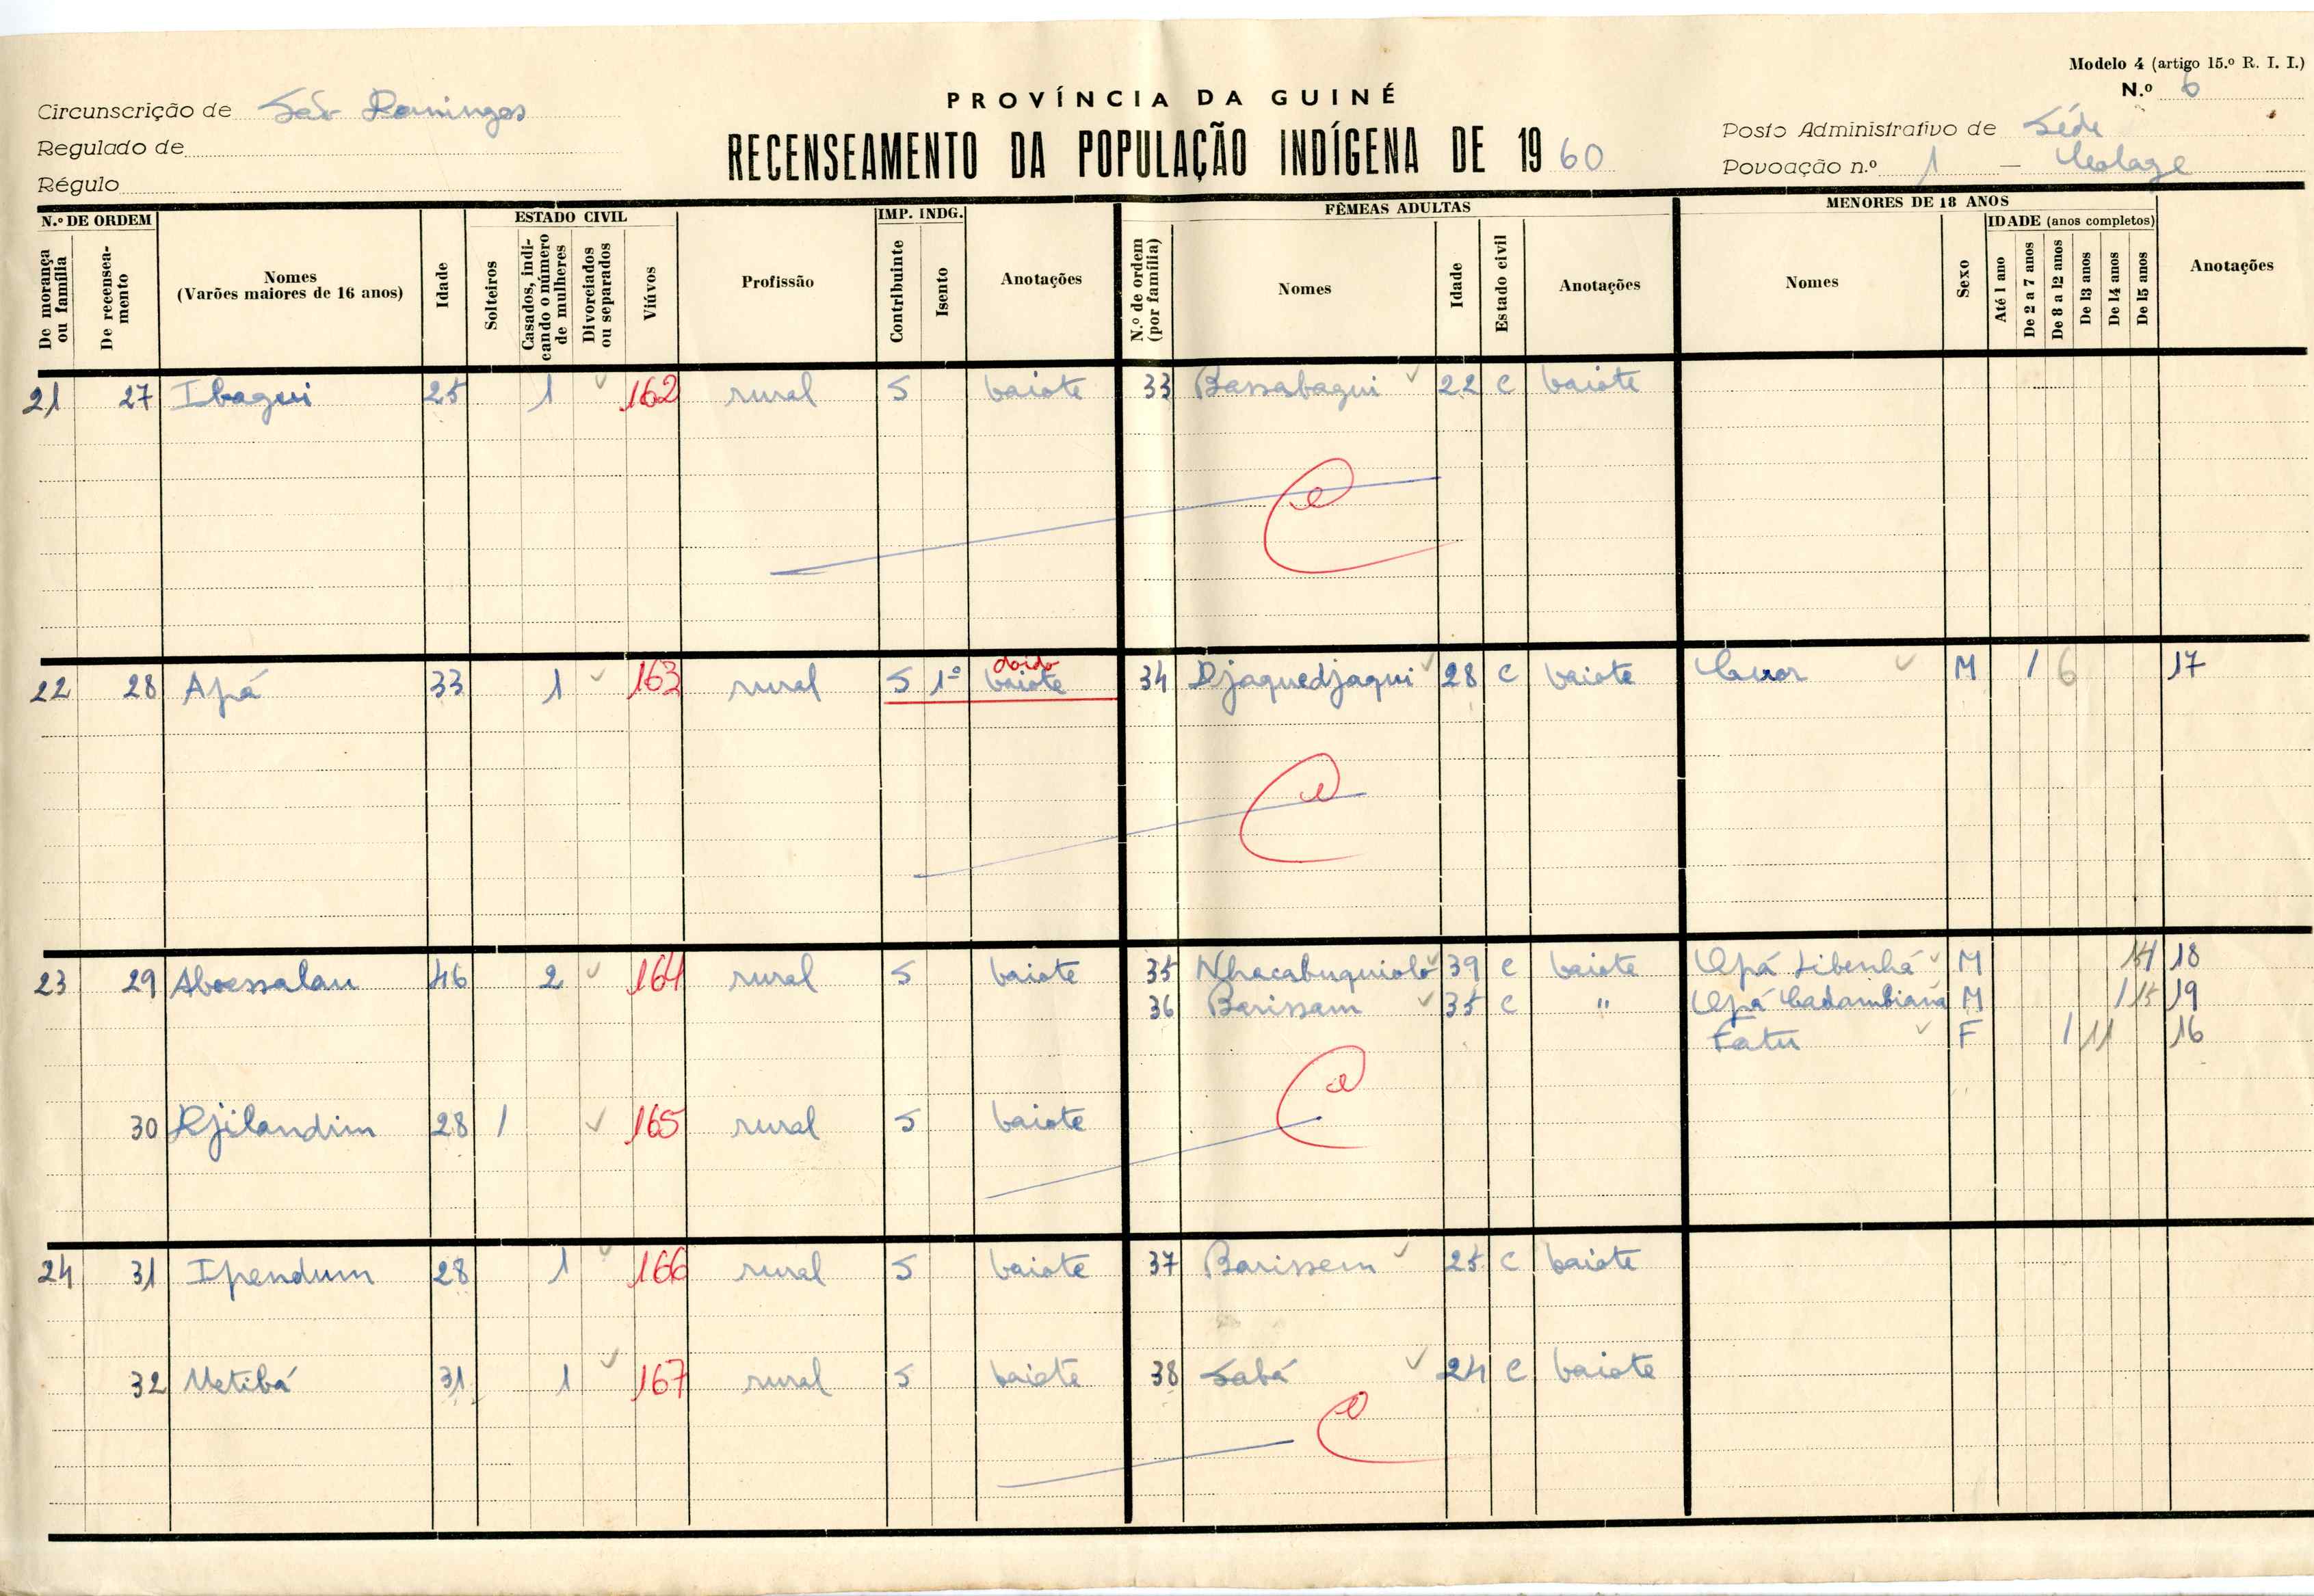 Modelo 4 (artigo 15.º R. I. I.)
N.º 6
Circunscrição de São Domingos
Regulado de
Régulo
PROVÍNCIA DA GUINÉ
RECENSEAMENTO DA POPULAÇÃO INDÍGENA DE 1960
Posto Administrativo de Séde
Povoação n.º 1 —
N.º DE ORDEM
De morança ou família
De recenseamento
Nomes
(Varões maiores de 16 anos)
Idade
ESTADO CIVIL
Solteiros
Casados, indicando o número de mulheres
Divorciados ou separados
Viúvos
Profissão
IMP. INDG.
Contribuinte
Isento
Anotações
FÊMEAS ADULTAS
N.º de ordem (por família)
Nomes
Idade
Estado civil
Anotações
MENORES DE 18 ANOS
Nomes
Sexo
IDADE (anos completos)
Até 1 ano
De 2 a 7 anos
De 8 a 12 anos
De 13 anos
De 14 anos
De 15 anos
Anotações
21 27 Ibagui 25 1 162 rural S baiote 33 Bassabagui 22 C baiote
doido
22 28 Apá 33 1 163 rural S 1º baiote 34 Djaquedjaqui 28 C baiote M 1 6 17
23 29 Aboessalau 46 2 164 rural S baiote 35 Nhacabuquiolo 39 C baiote Apá Libenhá M 14 18
36 Barissam 35 C " Apá Cadambiana M 1 15 19
Fatu F 1 11 16
30 Djilandim 28 1 165 rural S baiote
24 31 Ipendum 28 1 166 rural S baiote 37 Barissem 25 C baiote
32 Metibá 31 1 167 rural S baiote 38 Sabá 24 C baiote